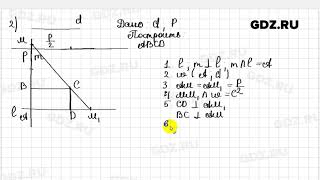 2) d Дано d, P
GDZ.RU
M P/2 Построить
ABCD
P m
1. l, m ⊥ l, m ∩ l = A
B C 2 w (A, d)
3 AM = AM₁ = P/2
4 MM₁ ∩ w = C
5 CD ⊥ AM
l A D M₁ BC ⊥ AM
6.
GDZ.RU